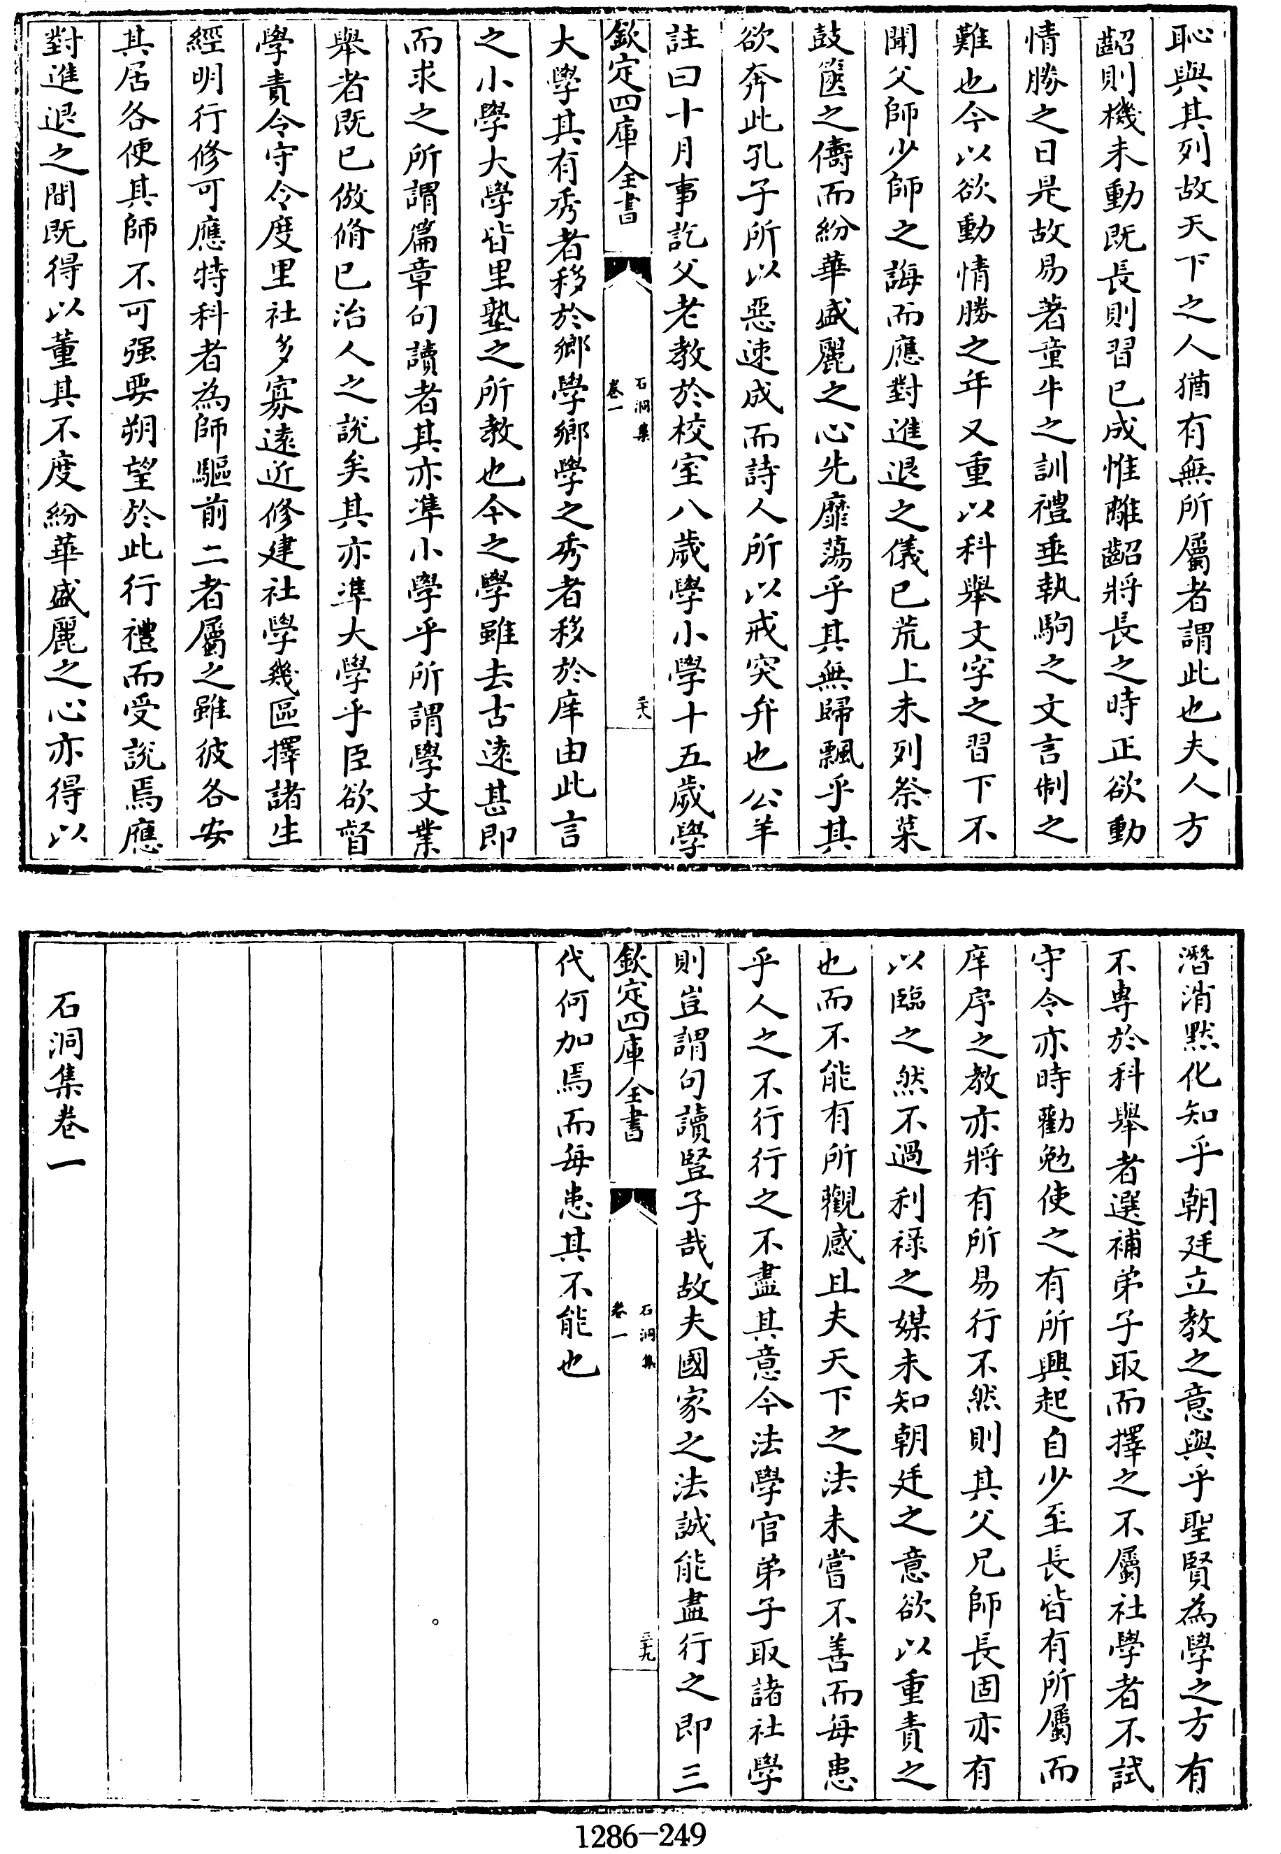 恥與其列故天下之人猶有無所屬者謂此也夫人方
齠則機未動既長則習已成惟離齠將長之時正欲動
情勝之日是故易著童牛之訓禮垂執駒之文言制之
難也今以欲動情勝之年又重以科舉文字之習下不
聞父師少師之誨而應對進退之儀已荒上未列祭菜
鼓篋之儔而紛華盛麗之心先靡蕩乎其無歸飄乎其
欲奔此孔子所以惡速成而詩人所以戒突弁也公羊
註曰十月事訖父老教於校室八歲學小學十五歲學
欽定四庫全書
石洞集
卷一
三十八
大學其有秀者移於鄉學鄉學之秀者移於庠由此言
之小學大學皆里塾之所教也今之學雖去古逺甚即
而求之所謂篇章句讀者其亦準小學乎所謂學文業
舉者既已倣脩已治人之說矣其亦準大學乎臣欲督
學責令守令度里社多寡逺近修建社學幾區擇諸生
經明行修可應特科者為師驅前二者屬之雖彼各安
其居各便其師不可强要朔望於此行禮而受說焉應
對進退之間既得以董其不度紛華盛麗之心亦得以
潛消默化知乎朝廷立教之意與乎聖賢為學之方有
不専於科舉者選補弟子取而擇之不屬社學者不試
守令亦時勸勉使之有所興起自少至長皆有所屬而
庠序之教亦將有所易行不然則其父兄師長固亦有
以臨之然不過利祿之媒未知朝廷之意欲以重責之
也而不能有所觀感且夫天下之法未嘗不善而每患
乎人之不行行之不盡其意今法學官弟子取諸社學
則豈謂句讀豎子哉故夫國家之法誠能盡行之即三
欽定四庫全書
石洞集
卷一
三十九
代何加焉而每患其不能也
石洞集卷一
1286-249